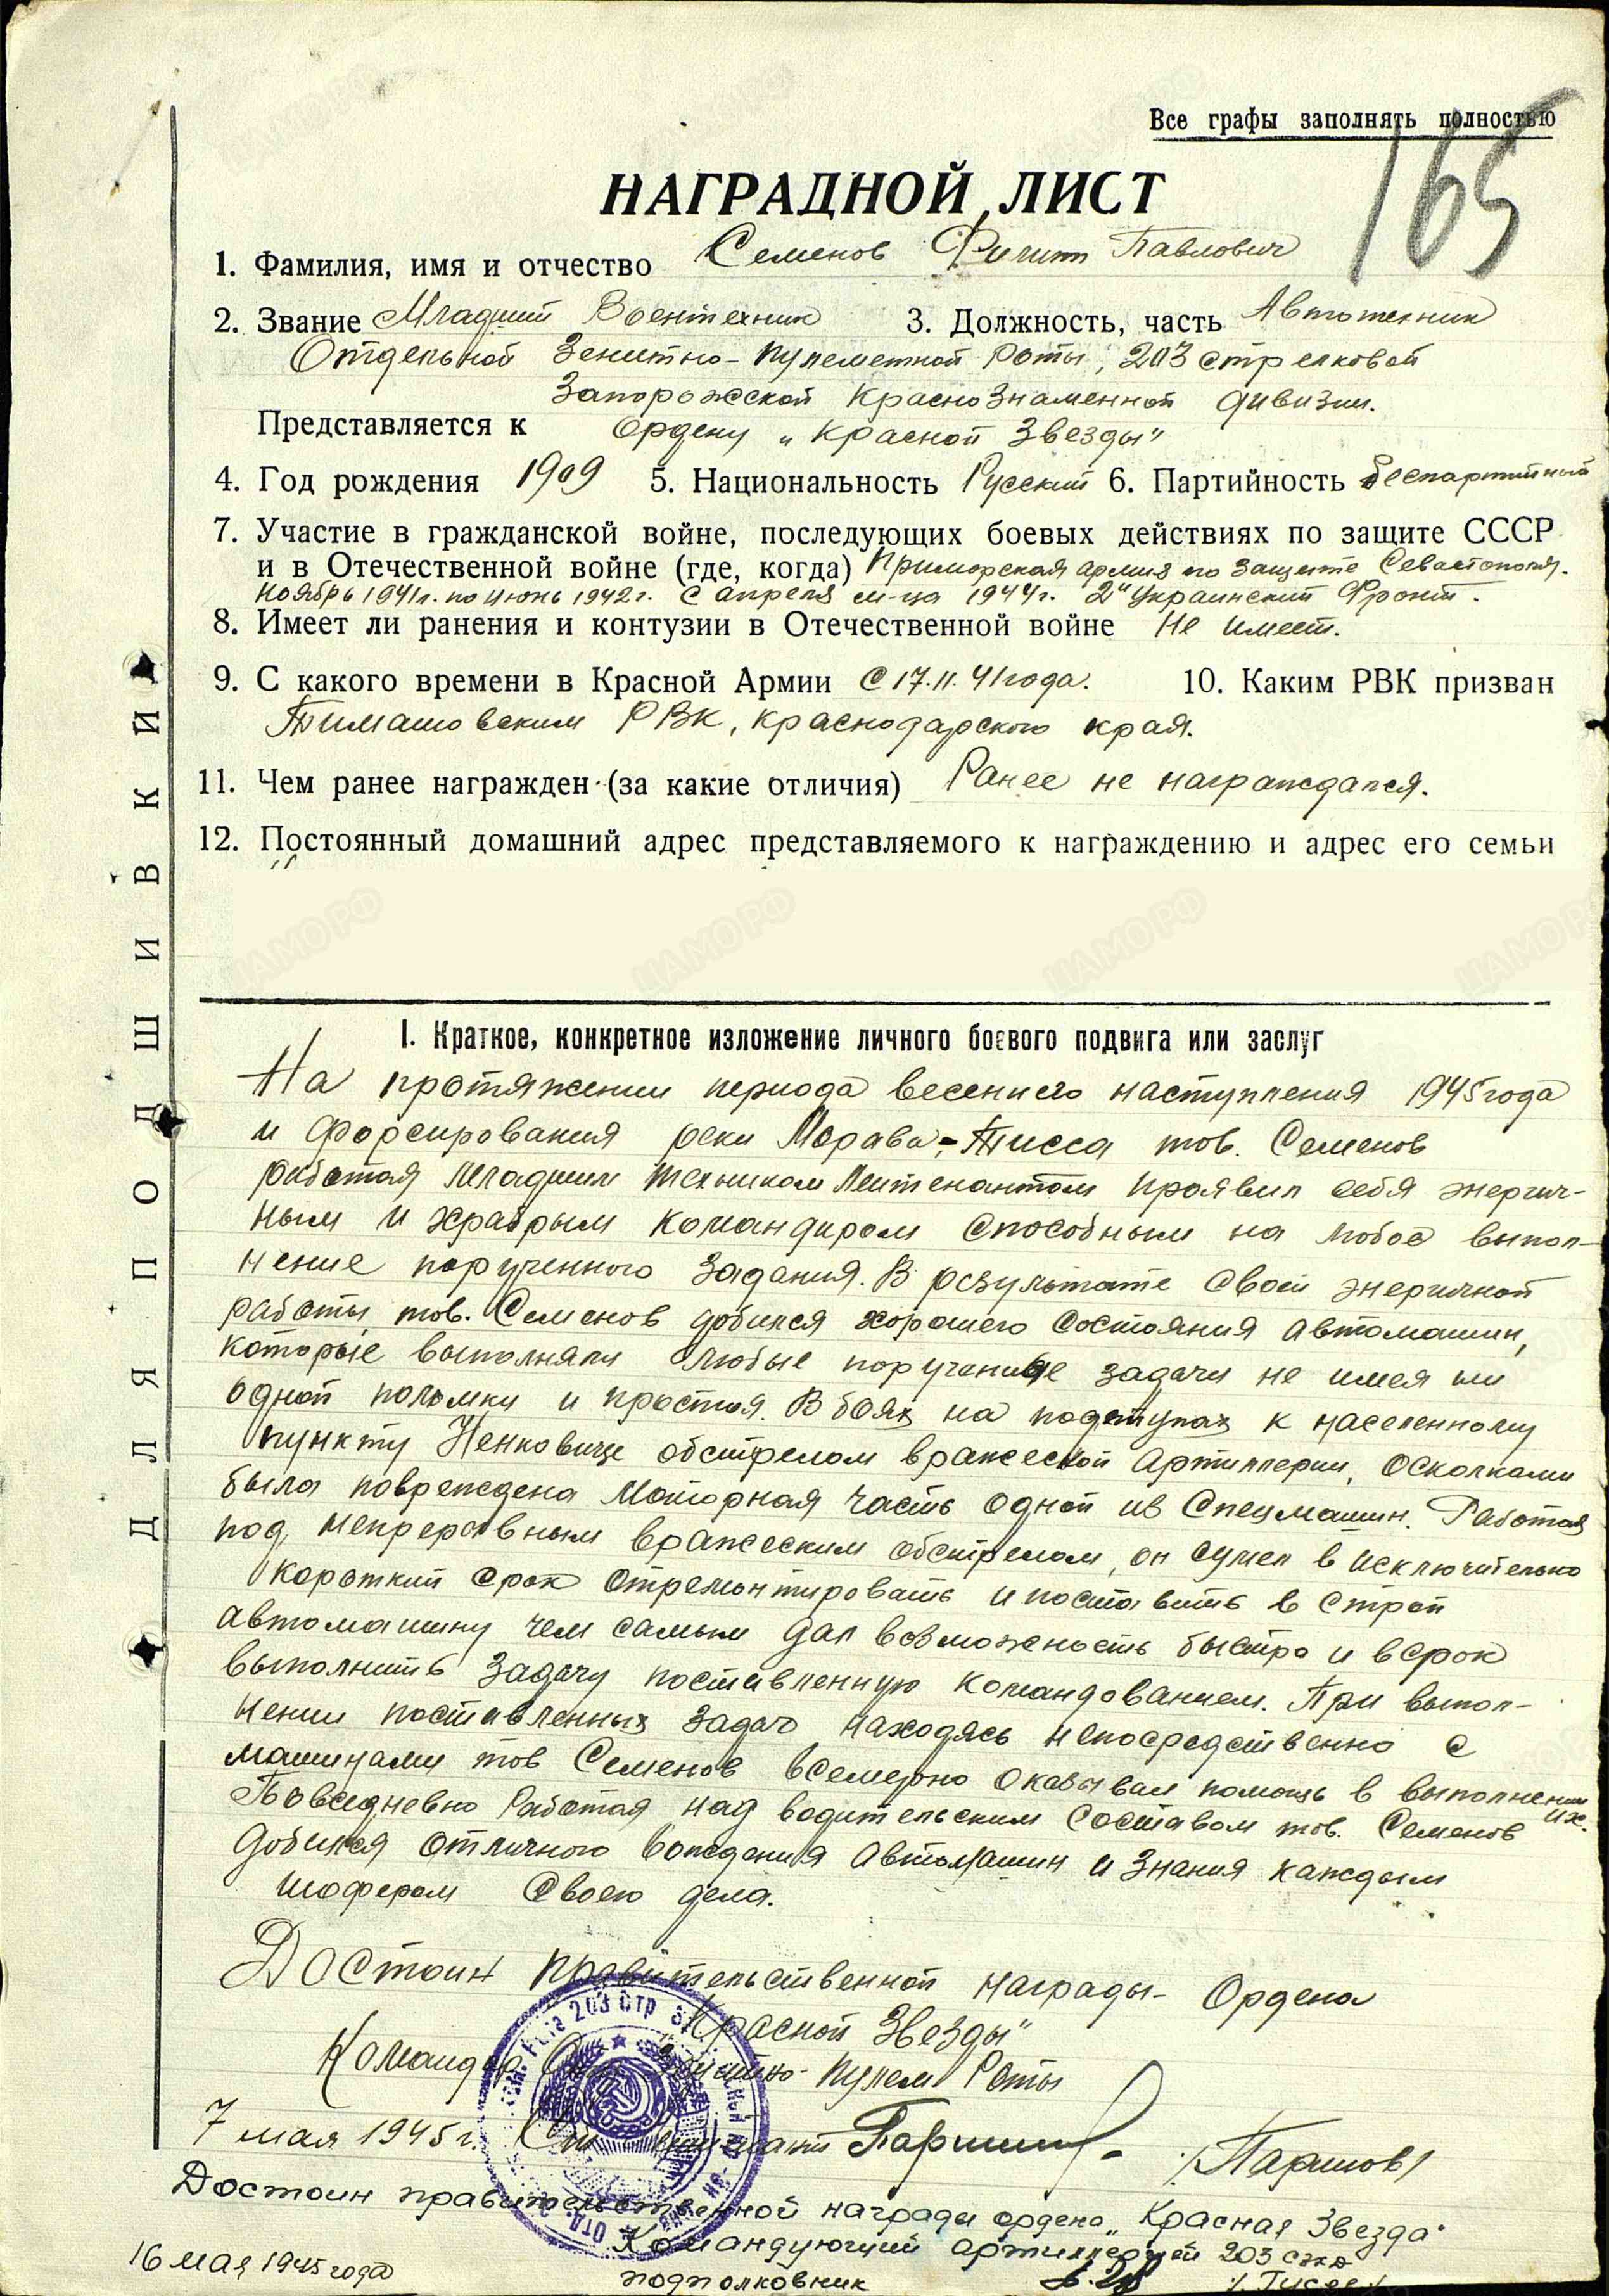 Все графы заполнять полностью
165
НАГРАДНОЙ ЛИСТ
1. Фамилия, имя и отчество Семенов Филипп Павлович
2. Звание Младший Воентехник 3. Должность, часть Автотехник
Отдельной Зенитно-пулеметной роты, 203 стрелковой
Запорожской Краснознаменной дивизии.
Представляется к Ордену „Красной Звезды"
4. Год рождения 1909 5. Национальность Русский 6. Партийность беспартийный
7. Участие в гражданской войне, последующих боевых действиях по защите СССР
и в Отечественной войне (где, когда) Приморская армия по защите Севастополя.
Ноябрь 1941г. по июнь 1942г. С апреля м-ца 1944г. 2й Украинский Фронт.
8. Имеет ли ранения и контузии в Отечественной войне Не имеет.
9. С какого времени в Красной Армии С 17.11.41 года. 10. Каким РВК призван
Тимашовским РВК, Краснодарского края.
11. Чем ранее награжден (за какие отличия) Ранее не награждался.
12. Постоянный домашний адрес представляемого к награждению и адрес его семьи
ДЛЯ ПОДШИВКИ
I. Краткое, конкретное изложение личного боевого подвига или заслуг
На протяжении периода весеннего наступления 1945 года
и форсирования реки Морава-Тисса тов. Семенов
работая Младшим техником Лейтенантом проявил себя энергич-
ным и храбрым командиром способным на любое выпол-
нение порученного задания. В результате своей энергичной
работы тов. Семенов добился хорошего состояния автомашин,
которые выполняли любые порученые задачи не имея ни
одной поломки и простоя. В боях на подступах к населенному
пункту Ненковице обстрелом вражеской Артиллерии, осколками
была повреждена Моторная часть одной из Спецмашин. Работая
под непрерывным вражеским обстрелом, он сумел в исключительно
короткий срок отремонтировать и поставить в строй
автомашину чем самым дал возможность быстро и в срок
выполнить задачу поставленную командованием. При выпол-
нении поставленных задач находясь непосредственно с
машинами тов Семенов всемерно оказывал помощь в выполнении их.
Повседневно работая над водительским составом тов. Семенов
добился отличного вождения Автомашин и знания каждым
шофером своего дела.
Достоин правительственной награды- Ордена
„Красной Звезды"
Командир Зенитно-Пулем Роты
7 мая 1945г. Паршин /Паршов/
Достоин правительственной награды ордена „Красная Звезда"
Командующий артиллерией 203 сзкд
16 мая 1945 года подполковник /Гусев/